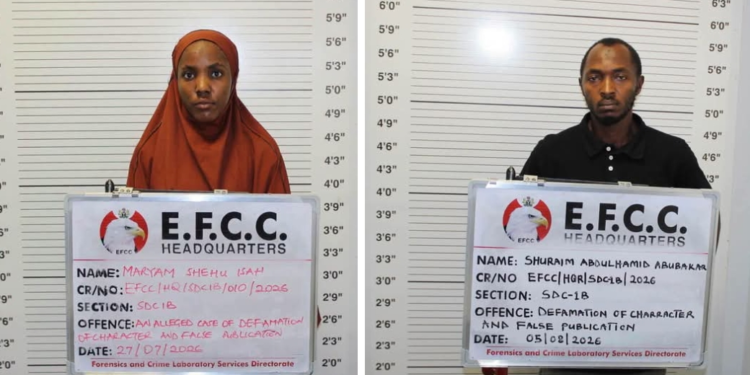 6'3"
5'9"
5'6"
5'3"
5'0"
4'9"
4'6"
4'3"
4'0"
3'9"
3'6"
3'3"
3'0"
2'9"
2'6"
2'3"
2'0"
E.F.C.C.
HEADQUARTERS
EFCC
NAME: MARYAM SHEHU ISAH
CR/NO: EFCC/HQ/SDC1B/010/2026
SECTION: SDC1B
OFFENCE: AN ALLEGED CASE OF DEFAMATION
OF CHARACTER AND FALSE PUBLICATION
DATE: 27/07/2026
Forensics and Crime Laboratory Services Directorate
E.F.C.C.
HEADQUARTERS
EFCC
NAME: SHURAIM ABDULHAMID ABUBAKAR
CR/NO EFCC/HQR/SDC1B/2026
SECTION: SDC-1B
OFFENCE: DEFAMATION OF CHARRACTER
AND FALSE PUBLICATION
DATE: 05/08/2026
Forensics and Crime Laboratory Services Directorate